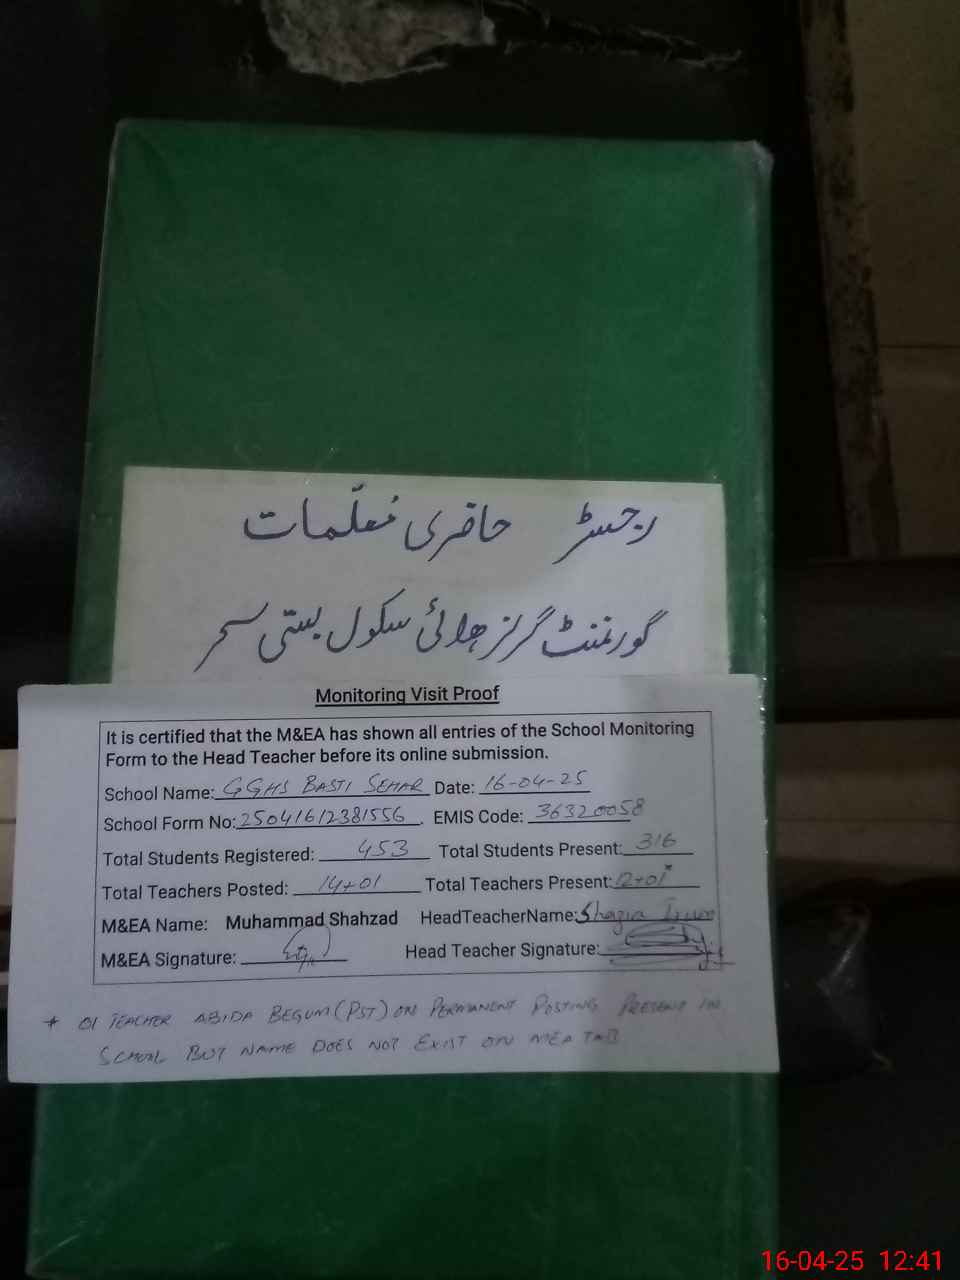 رجسٹر حاضری معلّمات
گورنمنٹ گرلز ھائی سکول بستی سحر
Monitoring Visit Proof
It is certified that the M&EA has shown all entries of the School Monitoring
Form to the Head Teacher before its online submission.
School Name: GGHS BASTI SEHAR Date: 16-04-25
School Form No: 25041612381556. EMIS Code: 36320058
Total Students Registered: 453 Total Students Present: 316
Total Teachers Posted: 14+01 Total Teachers Present: 12+01*
M&EA Name: Muhammad Shahzad HeadTeacherName: Shazia Irum
M&EA Signature: Head Teacher Signature:
* 01 TEACHER ABIDA BEGUM (PST) ON PERMANENT POSTING PRESENT IN
SCHOOL BUT NAME DOES NOT EXIST ON MEA TAB
16-04-25 12:41